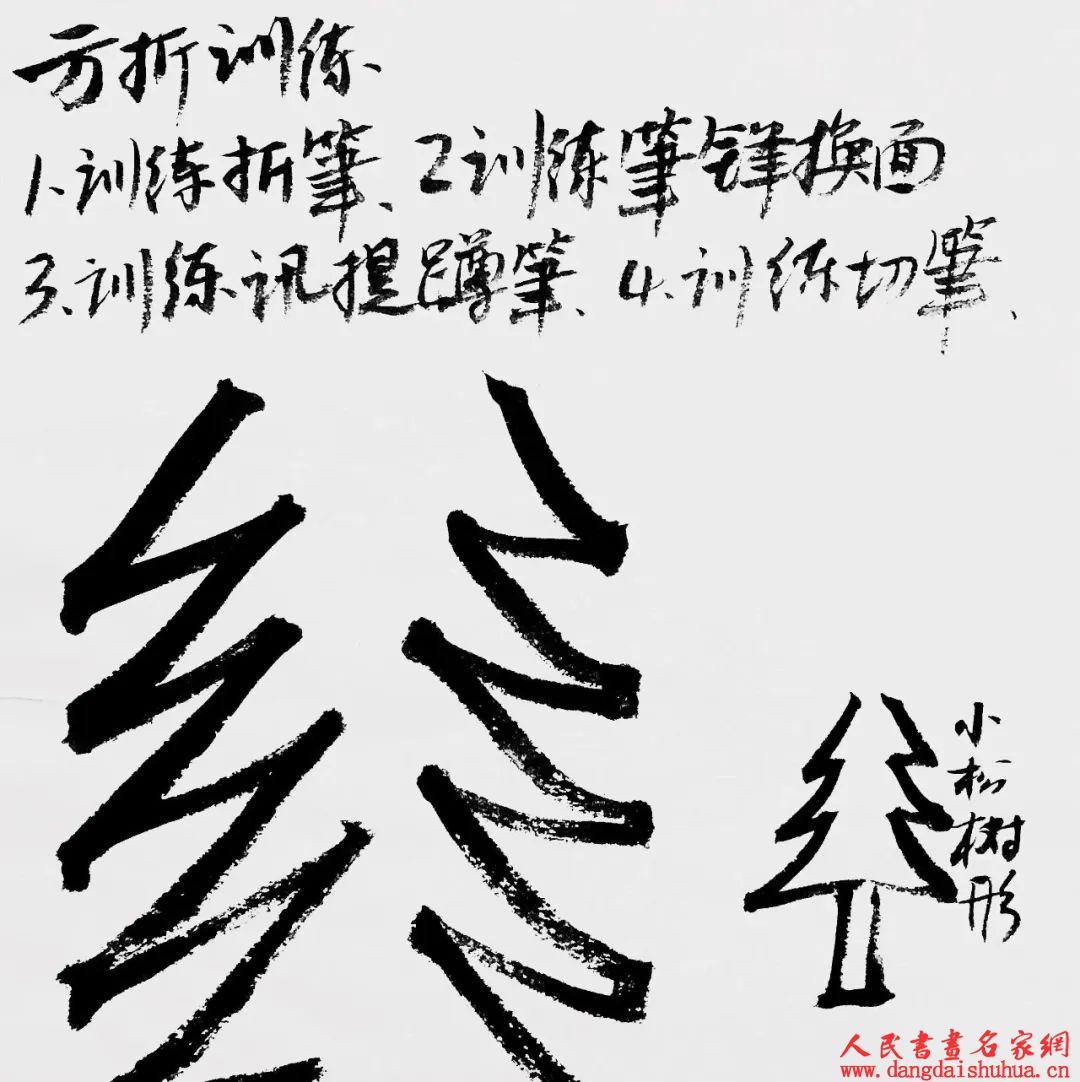 方折训练、
1、训练折筆、2训练筆锋换面
3、训练讯提蹲筆、4、训练切筆、
小松树形
人民書畫名家網
www.dangdaishuhua.cn